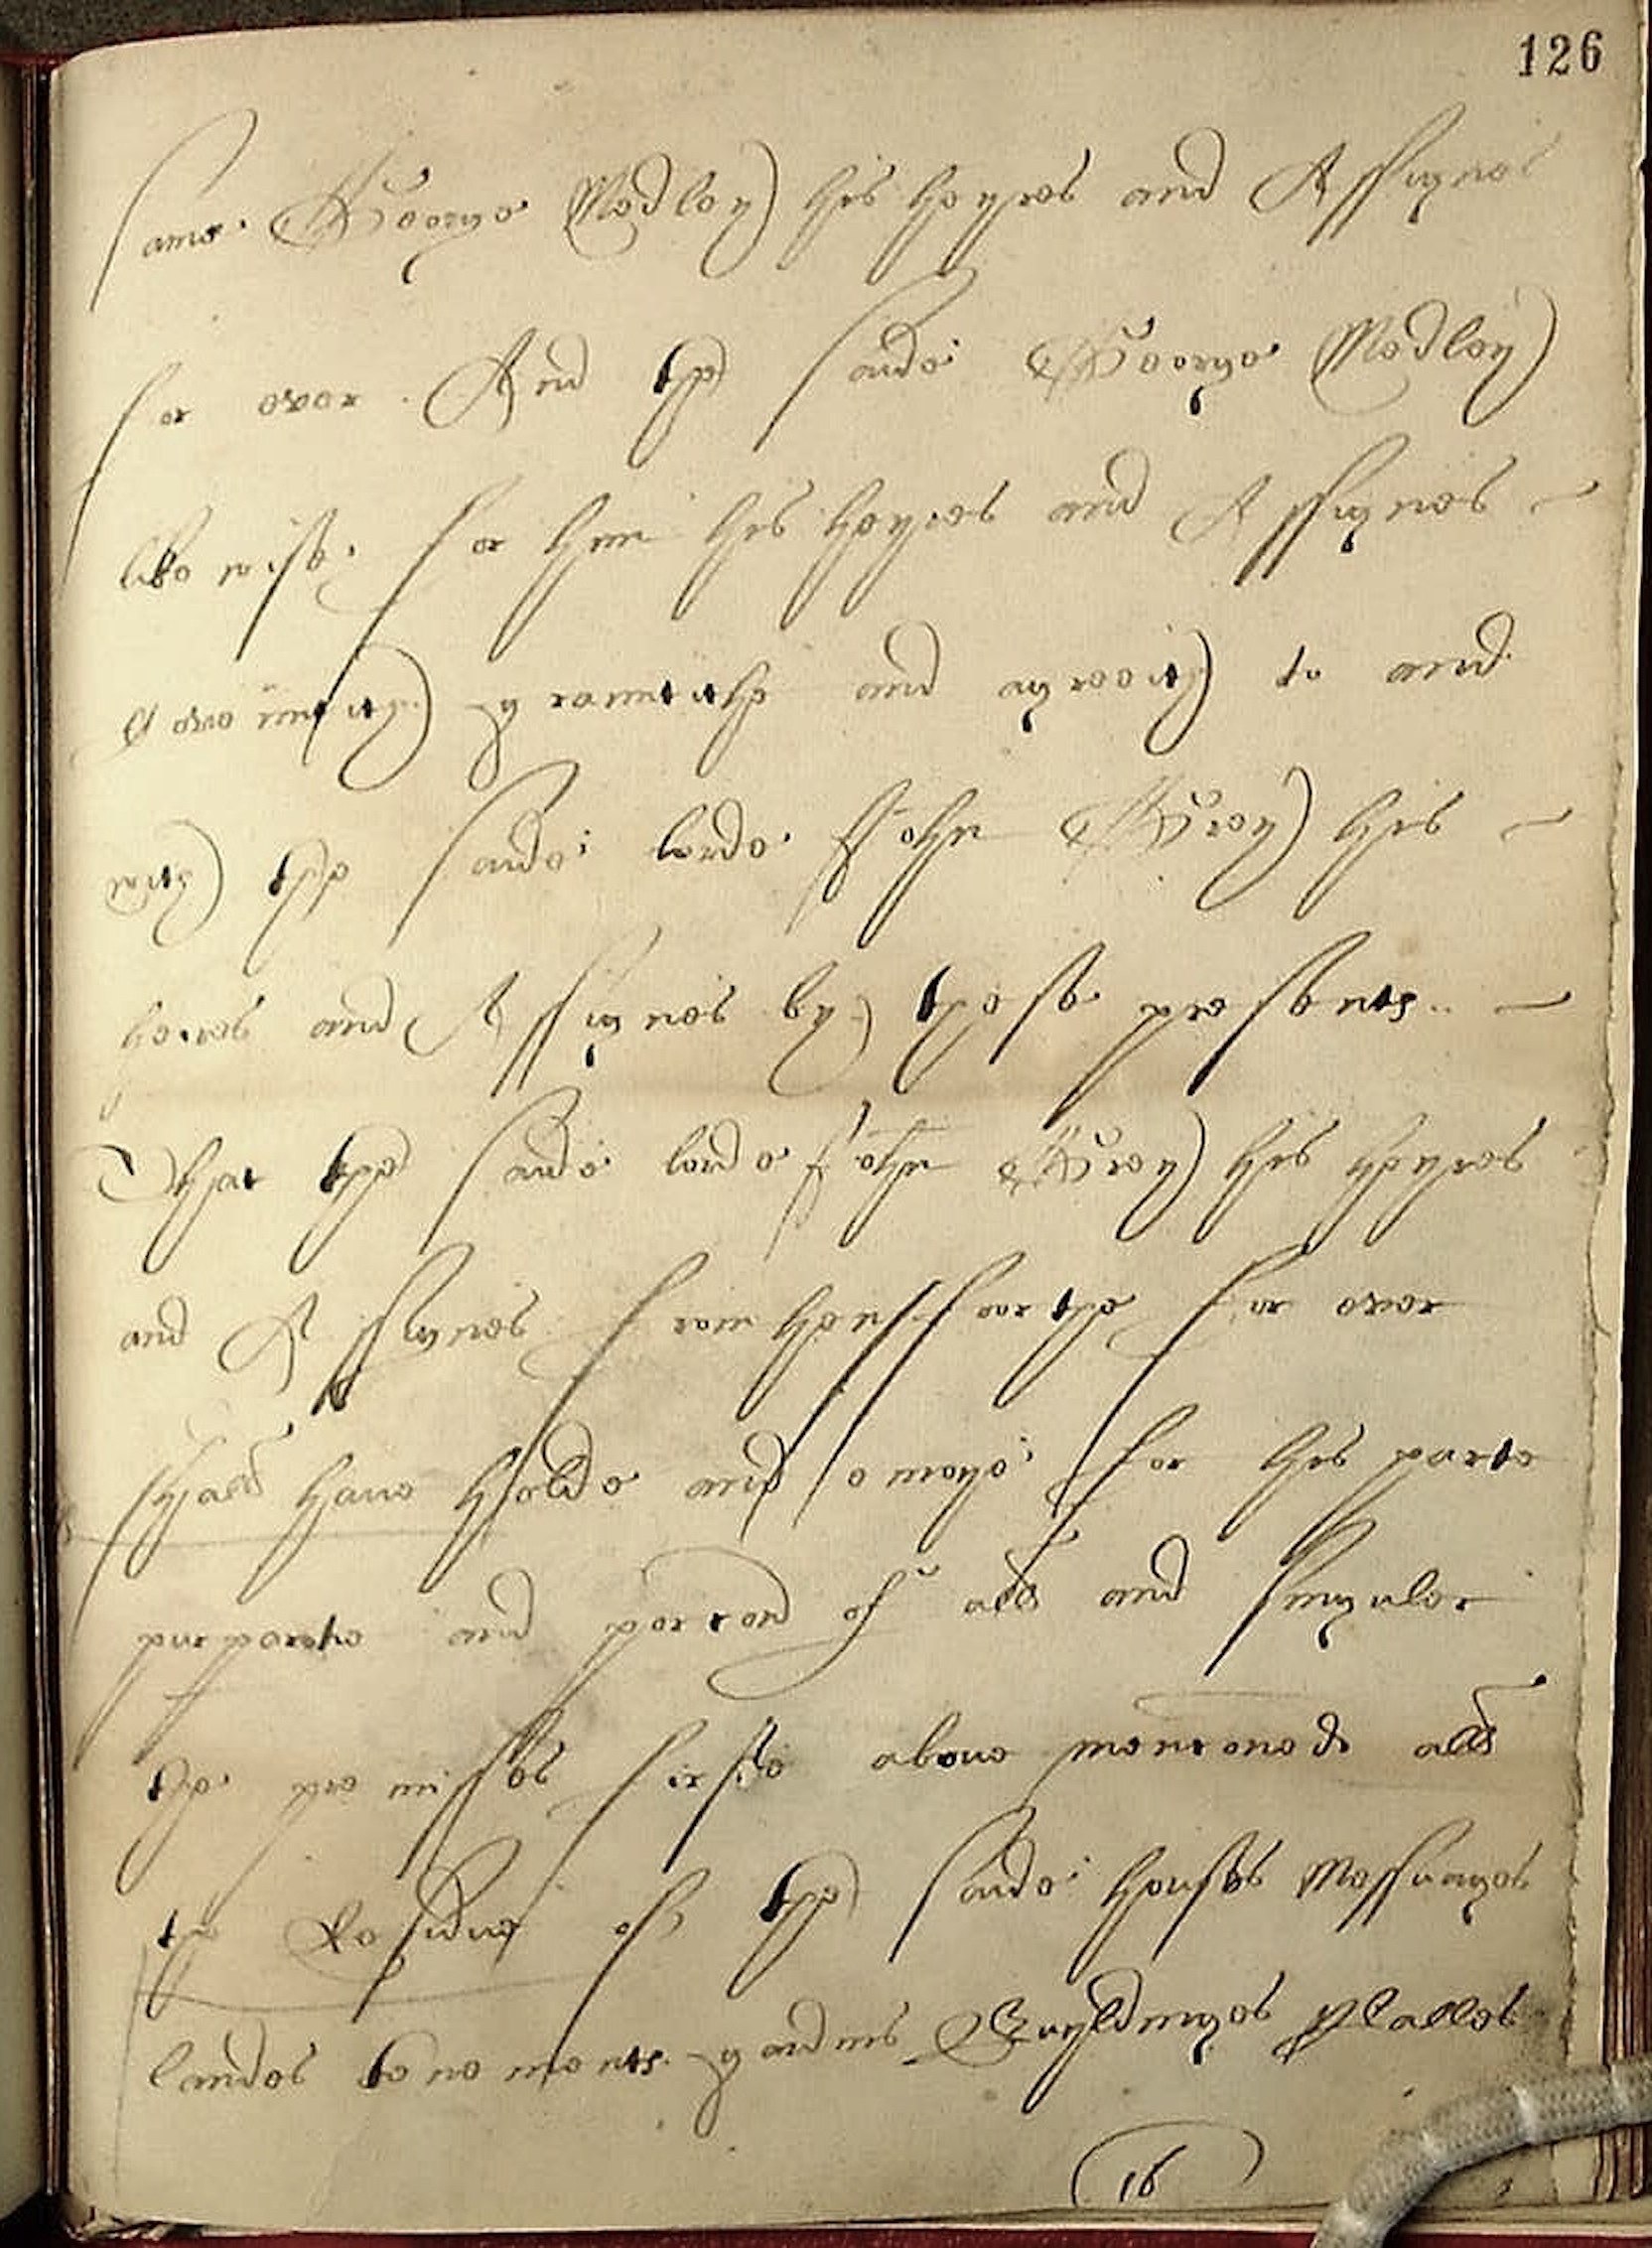 126
same George Medley his heyres and Assignes
for ever. And the saide George Medley
likewise for him his heyres and Assignes
Covenntith graunteth and agreeith to and
with the saide lorde John Grey his
heires and Assignes by these presents
That the saide lorde John Grey his heyres
and Assignes from hensffoorthe for ever
shall have holde and enioye for his parte
purpartie and porcon of all and singuler
the premisses firste above mencionede all
the Residue of the saide houses Messuages
landes tenements gardins Buyldinges Places
16